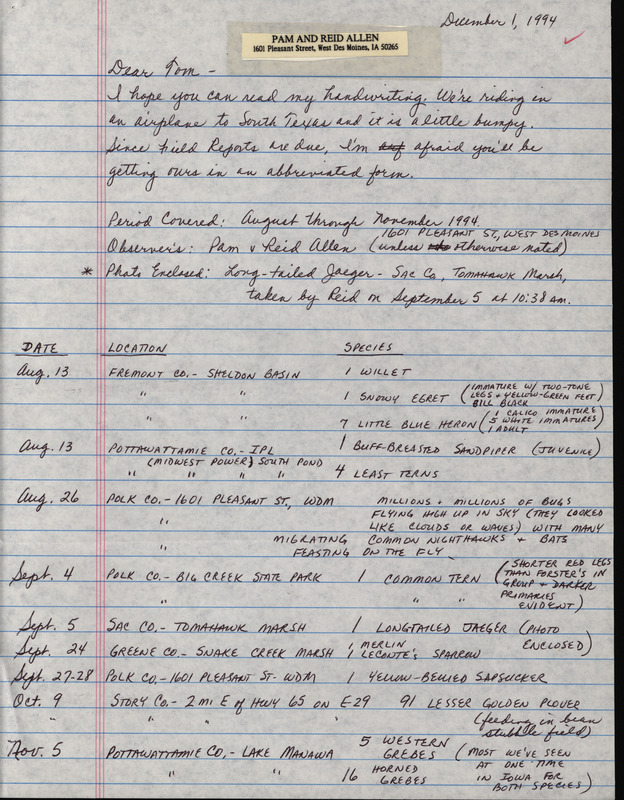 December 1, 1994
PAM AND REID ALLEN
1601 Pleasant Street, West Des Moines, IA 50265
Dear Tom -
I hope you can read my handwriting. We're riding in
an airplane to South Texas and it is a little bumpy.
Since Field Reports are due, I'm afraid you'll be
getting ours in an abbreviated form.
Period Covered: August through November 1994.
1601 PLEASANT ST, WEST DES MOINES
Observer's: Pam & Reid Allen (unless otherwise noted)
* Photo Enclosed: Long-tailed Jaeger - Sac Co, Tomahawk Marsh,
taken by Reid on September 5 at 10:38 am.
DATE LOCATION SPECIES
Aug. 13 FREMONT CO.- SHELDON BASIN 1 WILLET
" " 1 SNOWY EGRET (IMMATURE W/ TWO-TONE
LEGS + YELLOW-GREEN FEET)
BILL BLACK
" " 7 LITTLE BLUE HERON (1 CALICO IMMATURE
5 WHITE IMMATURES
1 ADULT)
Aug. 13 POTTAWATTAMIE CO.- IPL 1 BUFF-BREASTED SANDPIPER (JUVENILE)
(MIDWEST POWER) SOUTH POND
" " " " " 4 LEAST TERNS
Aug. 26 POLK CO.- 1601 PLEASANT ST., WDM MILLIONS + MILLIONS OF BUGS
FLYING HIGH UP IN SKY (THEY LOOKED
" LIKE CLOUDS OR WAVES) WITH MANY
" MIGRATING COMMON NIGHTHAWKS + BATS
FEASTING ON THE FLY
Sept. 4 POLK CO.- BIG CREEK STATE PARK 1 COMMON TERN (SHORTER RED LEGS
THAN FORSTER'S IN
GROUP + DARKER
" " " PRIMARIES
EVIDENT)
Sept. 5 SAC CO.- TOMAHAWK MARSH 1 LONGTAILED JAEGER (PHOTO
ENCLOSED)
Sept. 24 GREENE CO.- SNAKE CREEK MARSH 1 MERLIN
1 LECONTE'S SPARROW
Sept. 27-28 POLK CO.- 1601 PLEASANT ST- WDM 1 YELLOW-BELLIED SAPSUCKER
Oct. 9 STORY CO.- 2 MI E OF HWY 65 ON E-29 91 LESSER GOLDEN PLOVER
" " " " (feeding in bean
stubble field)
Nov. 5 POTTAWATTAMIE CO.- LAKE MANAWA 5 WESTERN
GREBES (MOST WE'VE SEEN
AT ONE TIME
" " 16 HORNED
GREBES IN IOWA FOR
BOTH SPECIES)